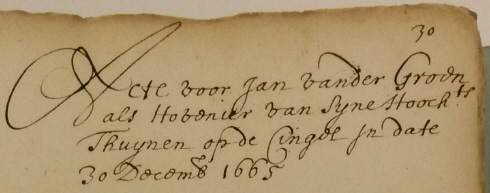 30
Acte voor Jan vander Groen
als Hovenier van Syne Hoochts
Thuynen op de Cingel In date
30 Decemb 1665